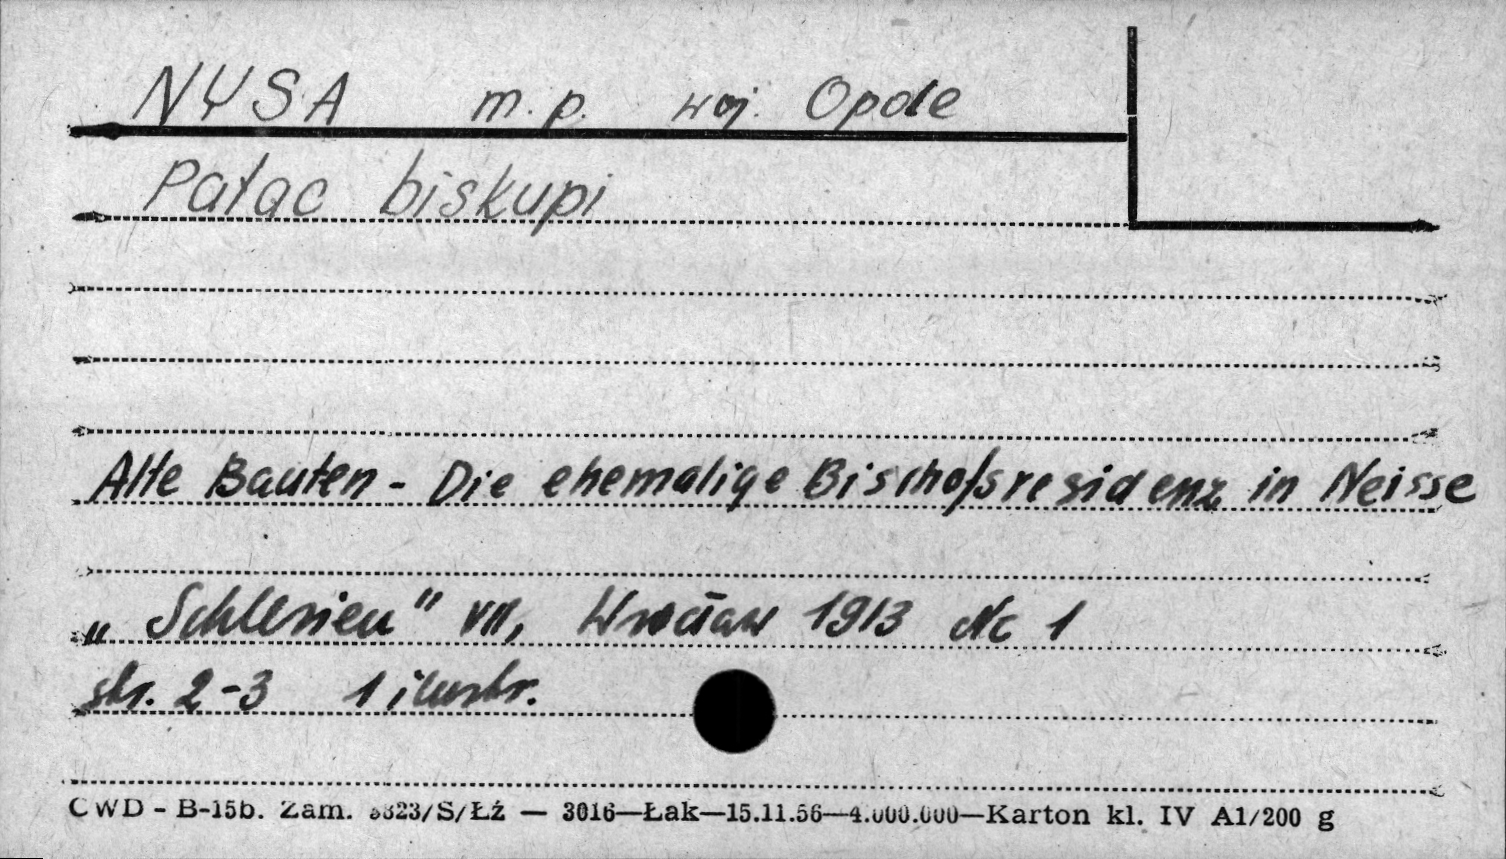 NYSA m.p. woj. Opole
Pałac biskupi
Alte Bauten - Die ehemalige Bischofsresidenz in Neisse
„Schlesien" VII, Wrocław 1913 Nr 1
str. 2-3 1 ilustr.
CWD - B-15b. Zam. 3823/S/Łź — 3016—Łak—15.11.56—4.000.000—Karton kl. IV A1/200 g